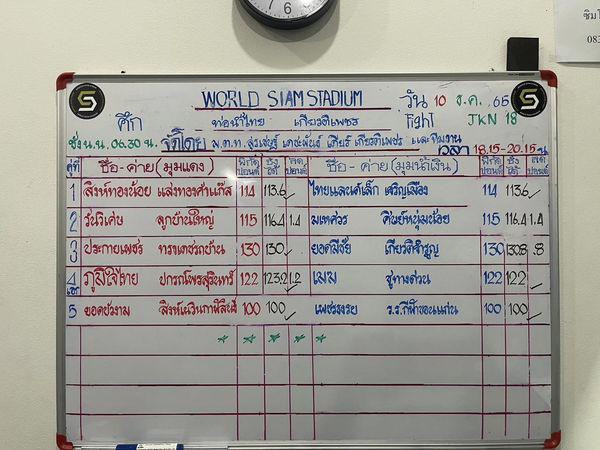 WORLD SIAM STADIUM
วัน 10 ธ.ค. 65
ศึก ท่อน้ำไทย เกียรติเพชร Fight JKN 18
ชั่ง น.น. 06.30 น. จัดโดย พ.ต.ท. เกียรติเพชร และทีมงาน
เวลา 18.15-20.15 น
คู่ที่ ชื่อ-ค่าย (มุมแดง) พิกัดปอนด์ ชั่งได้ ลดปอนด์ ชื่อ-ค่าย (มุมน้ำเงิน) พิกัดปอนด์ ชั่งได้ ลดปอนด์
1 สิงห์ทองน้อย แสงทองคำแก๊ส 114 113.6 ✓ ไทยแลนด์เล็ก เจริญเมือง 114 113.6 ✓
2 รุ่นวิเศษ ลูกบ้านใหญ่ 115 116.4 1.4 มเหศวร ศิษย์หนุ่มน้อย 115 116.4 1.4
3 ประกายเพชร 130 130 ✓ ยอดมีชัย เกียรติสำรูญ 130 130.8 .8
4 ภูมิใจไทย ปกรณ์พรสุรินทร์ 122 123.2 1.2 เมฆ ชูทางด่วน 122 122 ✓
5 ยอดบัวงาม 100 100 ✓ ร.ร.กีฬาขอนแก่น 100 100 ✓